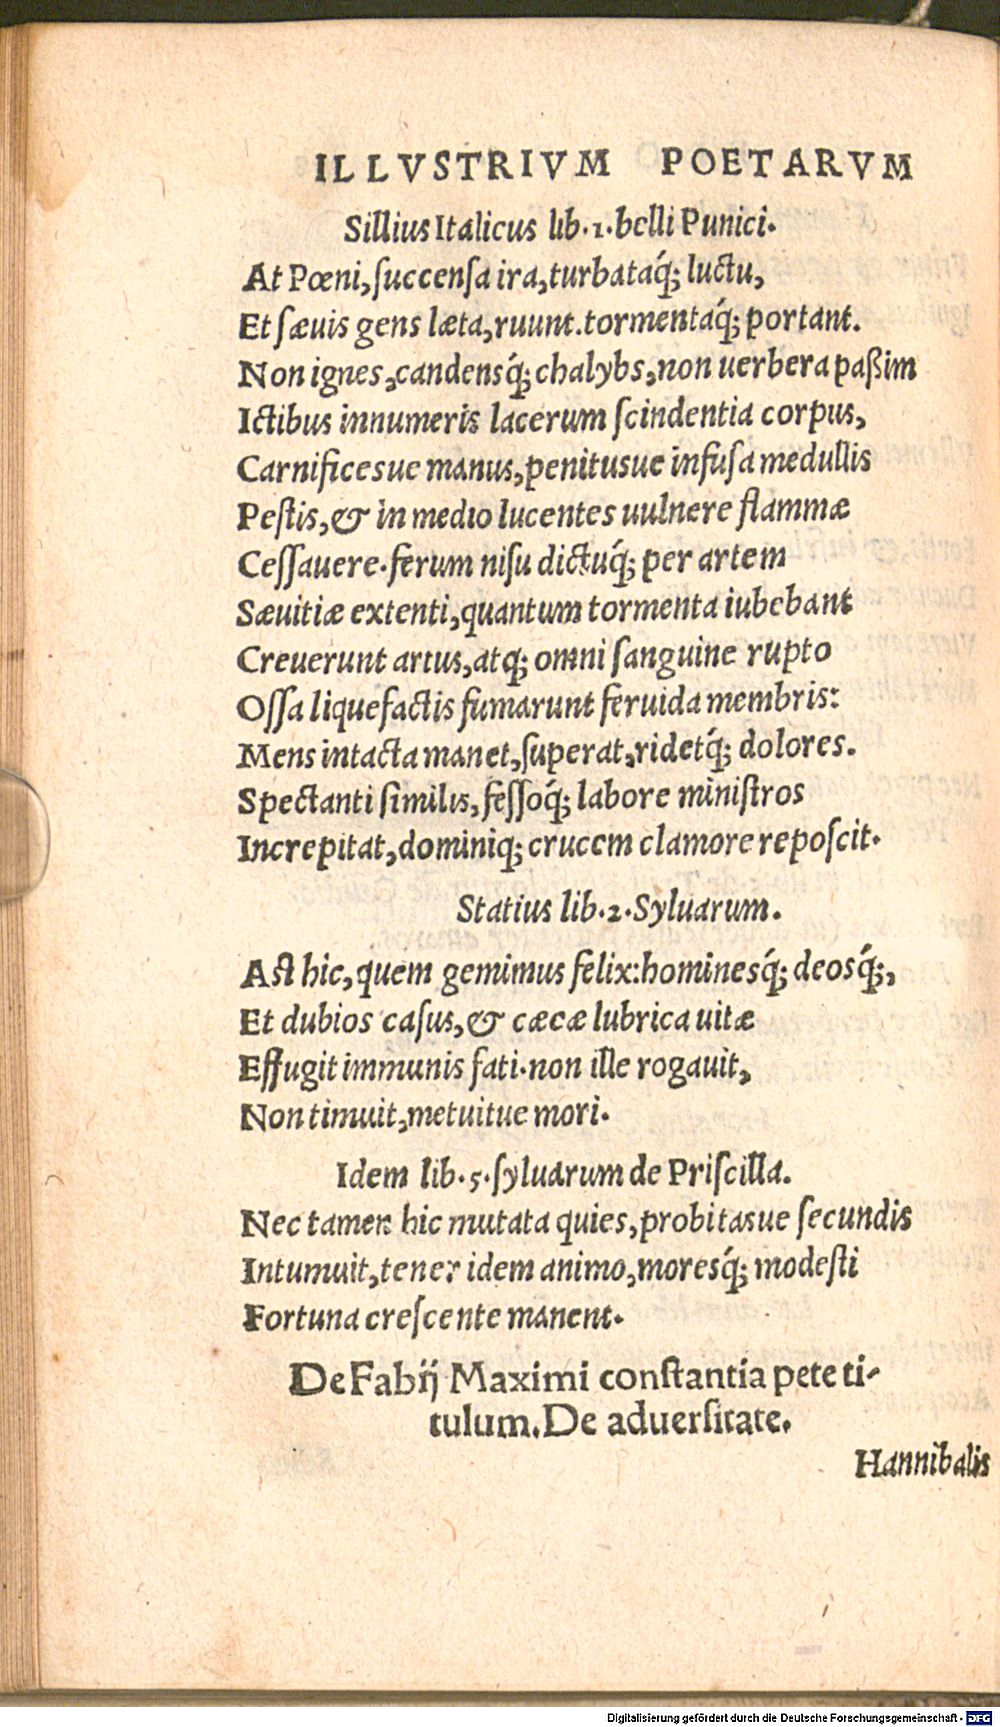 ILLVSTRIVM POETARVM
Sillius Italicus lib.1.belli Punici.
At Pœni,ſuccenſa ira,turbataq́; luctu,
Et ſæuis gens læta,ruunt.tormentaq́; portant.
Non ignes,candensq́; chalybs,non uerbera paßim
Ictibus innumeris lacerum ſcindentia corpus,
Carnificesue manus,penitusue infuſa medullis
Peſtis,& in medio lucentes uulnere flammæ
Ceſſauere.ferum niſu dictuq́; per artem
Sæuitiæ extenti,quantum tormenta iubebant
Creuerunt artus,atq; omni ſanguine rupto
Oſſa liquefactis fumarunt feruida membris:
Mens intacta manet,ſuperat,ridetq́; dolores.
Spectanti ſimilis,feſſoq́; labore miniſtros
Increpitat,dominiq; crucem clamore repoſcit.
Statius lib.2.Syluarum.
Aſt hic,quem gemimus felix:hominesq́; deosq́;,
Et dubios caſus,& cæcæ lubrica uitæ
Effugit immunis fati.non ille rogauit,
Non timuit,metuitue mori.
Idem lib.5.ſyluarum de Priſcilla.
Nec tamen hic mutata quies,probitasue ſecundis
Intumuit,tener idem animo,moresq́; modeſti
Fortuna creſcente manent.
De Fabij Maximi conſtantia pete ti-
tulum.De aduerſitate.
Hannibalis
Digitalisierung gefördert durch die Deutsche Forschungsgemeinschaft - DFG